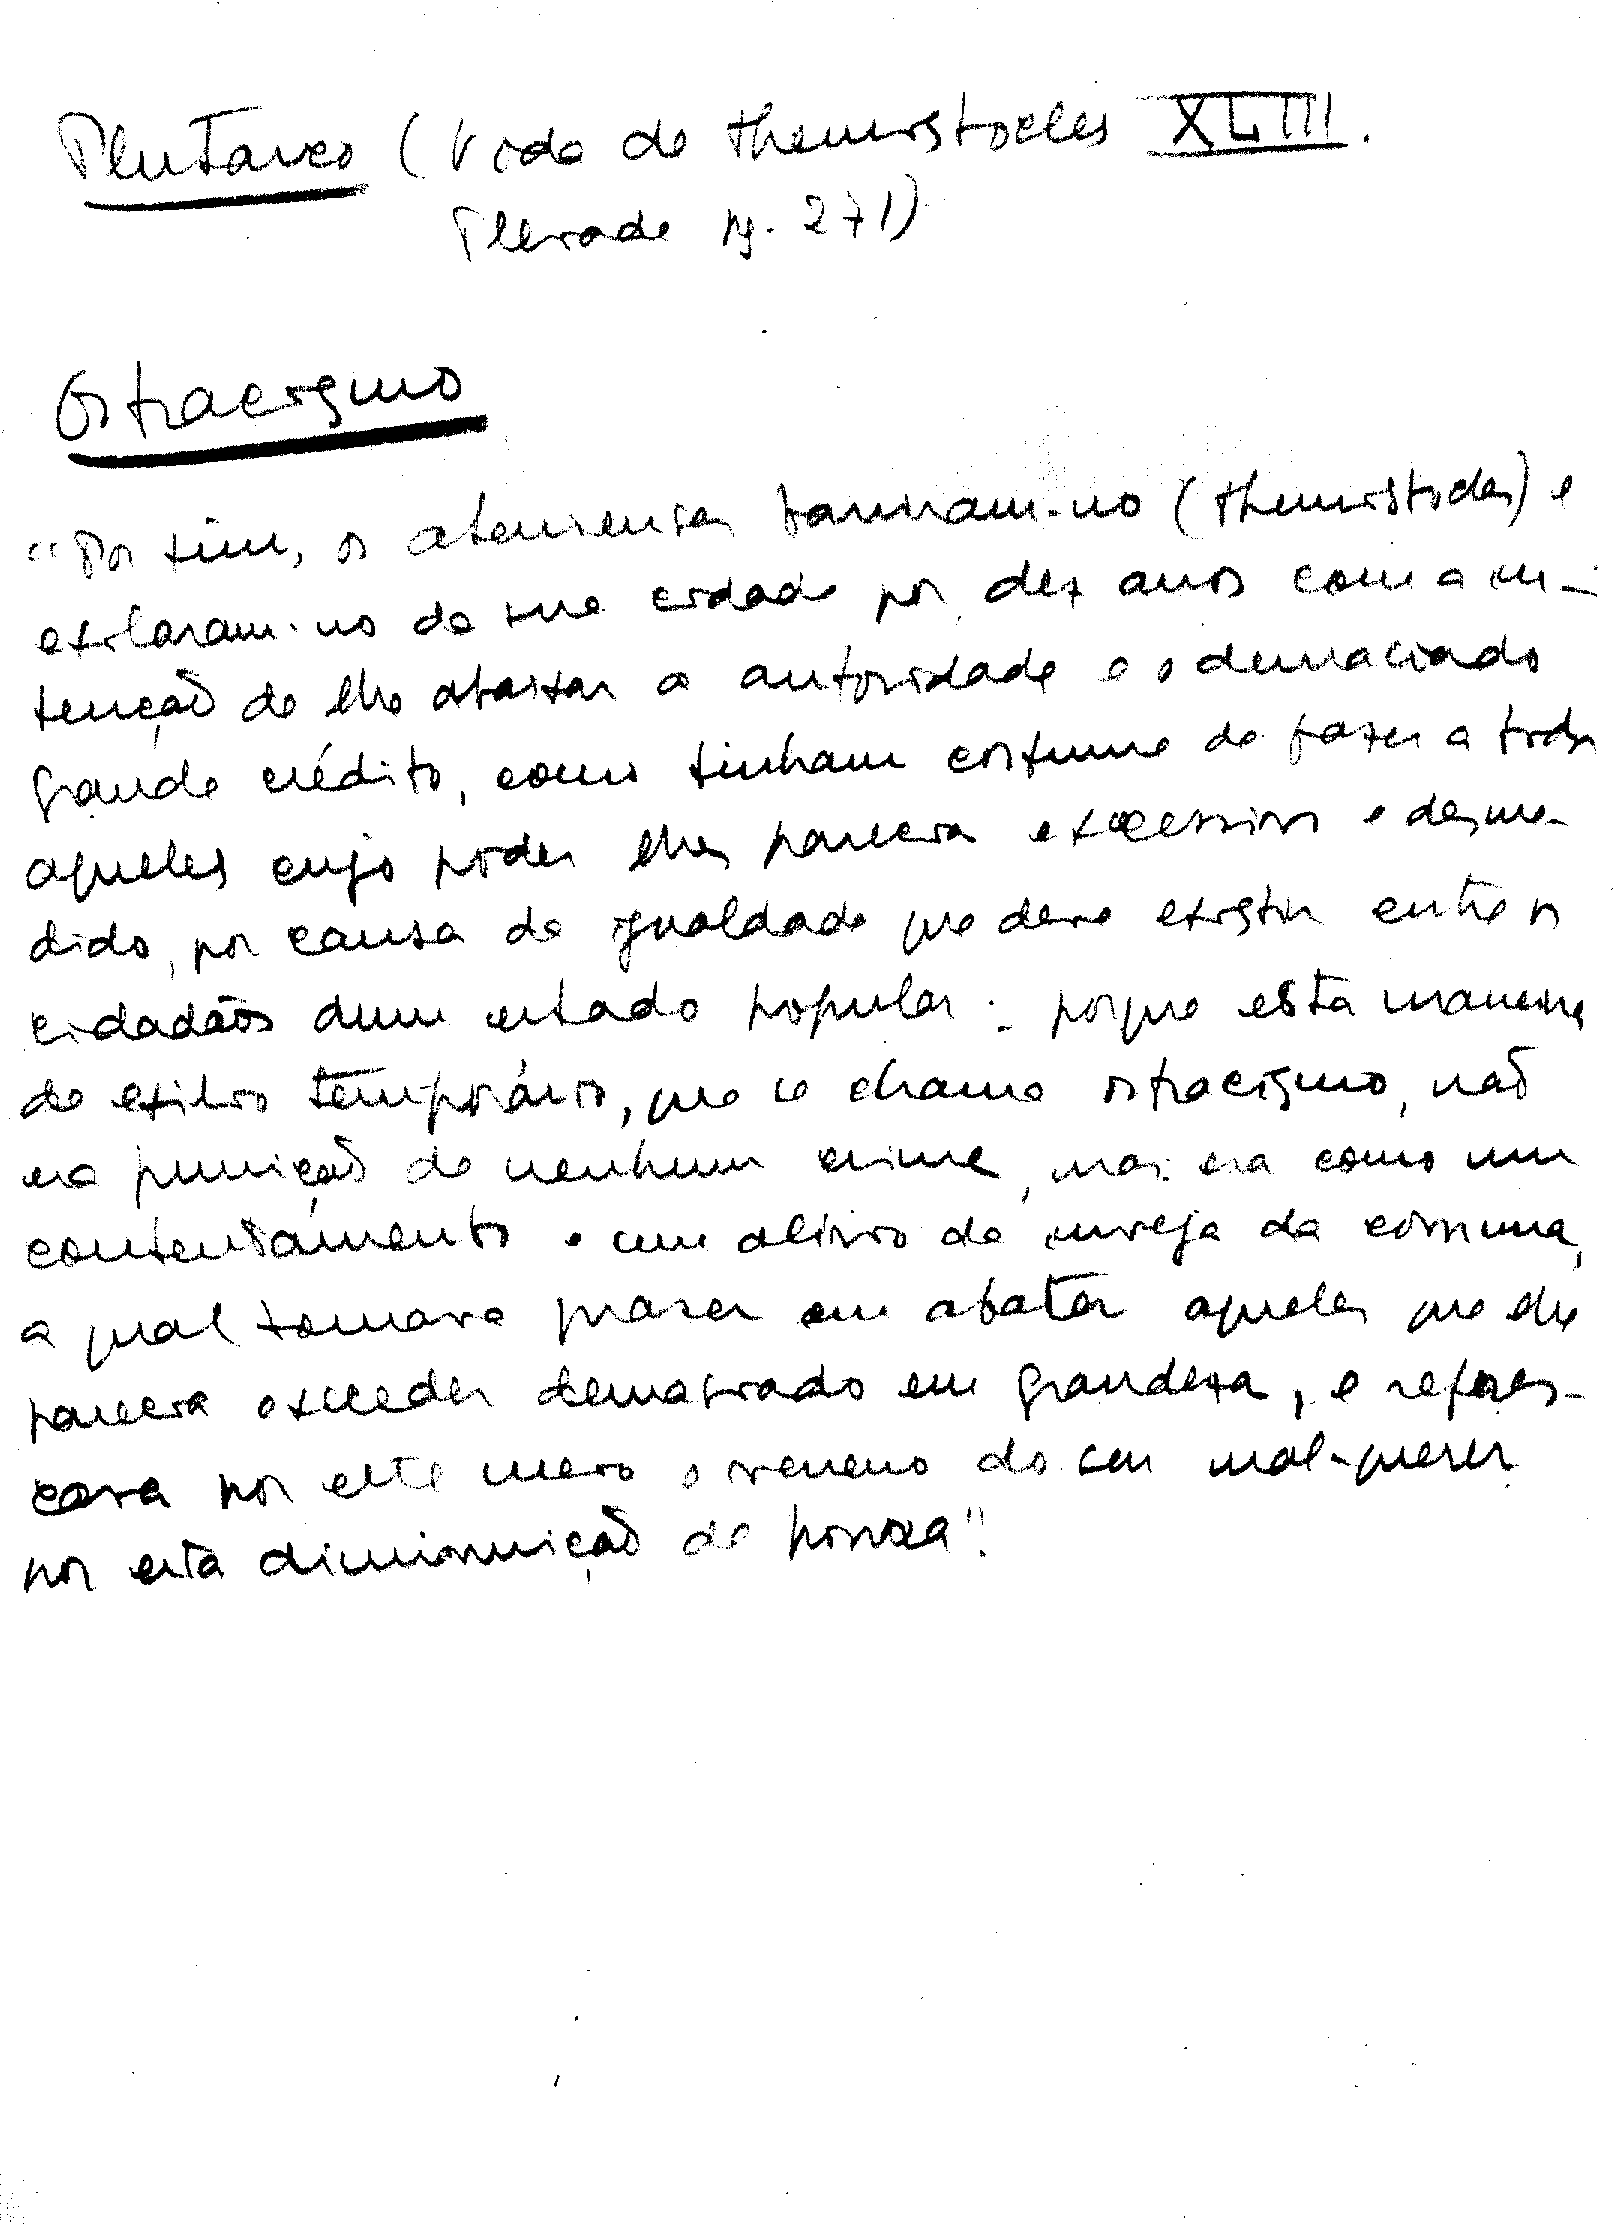 Plutarco (Vida de Themistocles XLIII.
Pleiade pg. 271)
Ostracismo
"Por fim, os atenienses baniram-no (Themistocles) e
exilaram-no da sua cidade por dez anos com a in-
tenção de lhe abaixar a autoridade e o demaciado
grande crédito, como tinham costume de fazer a todos
aqueles cujo poder lhes parecia excessivo e desme-
dido, por causa da igualdade que deve existir entre os
cidadãos dum estado popular: porque esta maneira
de exilio temporário, que se chama ostracismo, não
era punição de nenhum crime, mas era como um
contentamento e um alivio da inveja da comuna,
a qual tomava prazer em abater aqueles que ela
parecia exceder demasiado em grandeza, e refres-
cava por este meio o veneno do seu mal-querer
por esta dimionuição de honra".